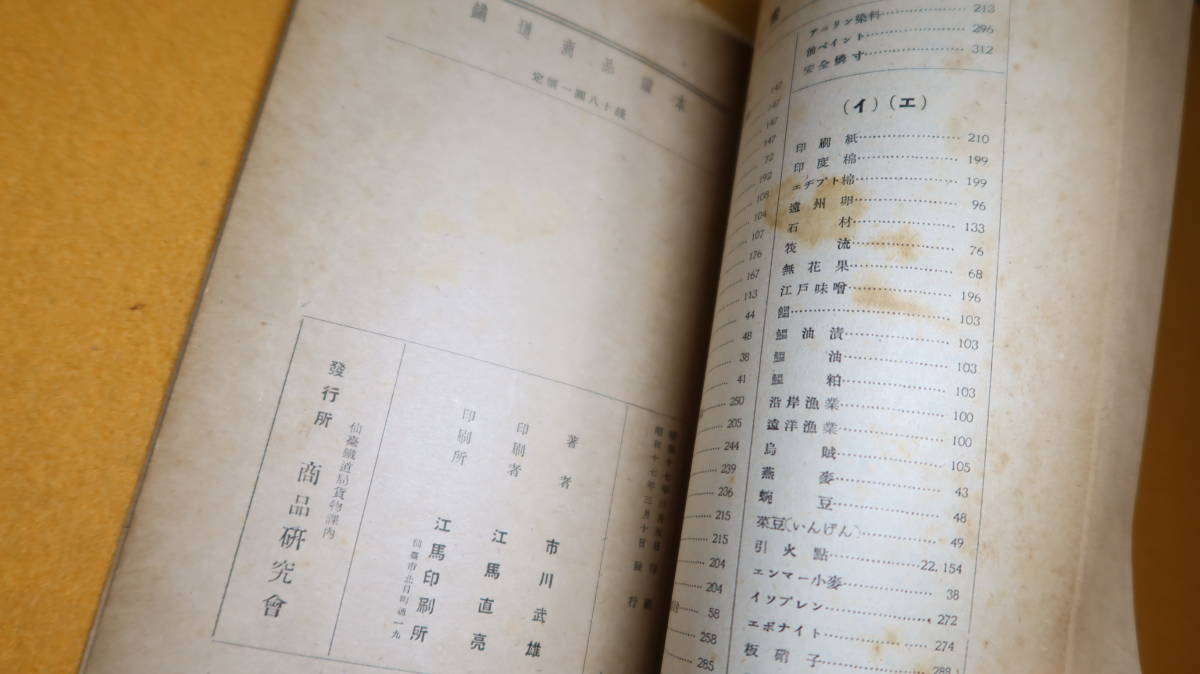 鐵道商品讀本
定價一圓八十錢
昭和十七年三月十日發行
著者 市川武雄
印刷者 江馬直亮
仙臺市北目町通一九
印刷所 江馬印刷所
仙臺鐵道局貨物課内
發行所 商品研究會
147
147
147
147
72
192
108
104
107
176
167
113
44
48
38
41
250
205
244
239
236
215
215
204
204
58
258
285
アニリン染料……213
船ペイント……296
安全燐寸……312
(イ)(エ)
印刷紙……210
印度棉……199
エヂプト棉……199
遠州卵……96
石材……133
筏流……76
無花果……68
江戸味噌……196
鰮……103
鰮油漬……103
鰮油……103
鰮粕……103
沿岸漁業……100
遠洋漁業……100
烏賊……105
燕麥……43
豌豆……48
菜豆(いんげん)……49
引火點……22.154
エンマー小麥……38
イソプレン……272
エボナイト……274
板硝子……288